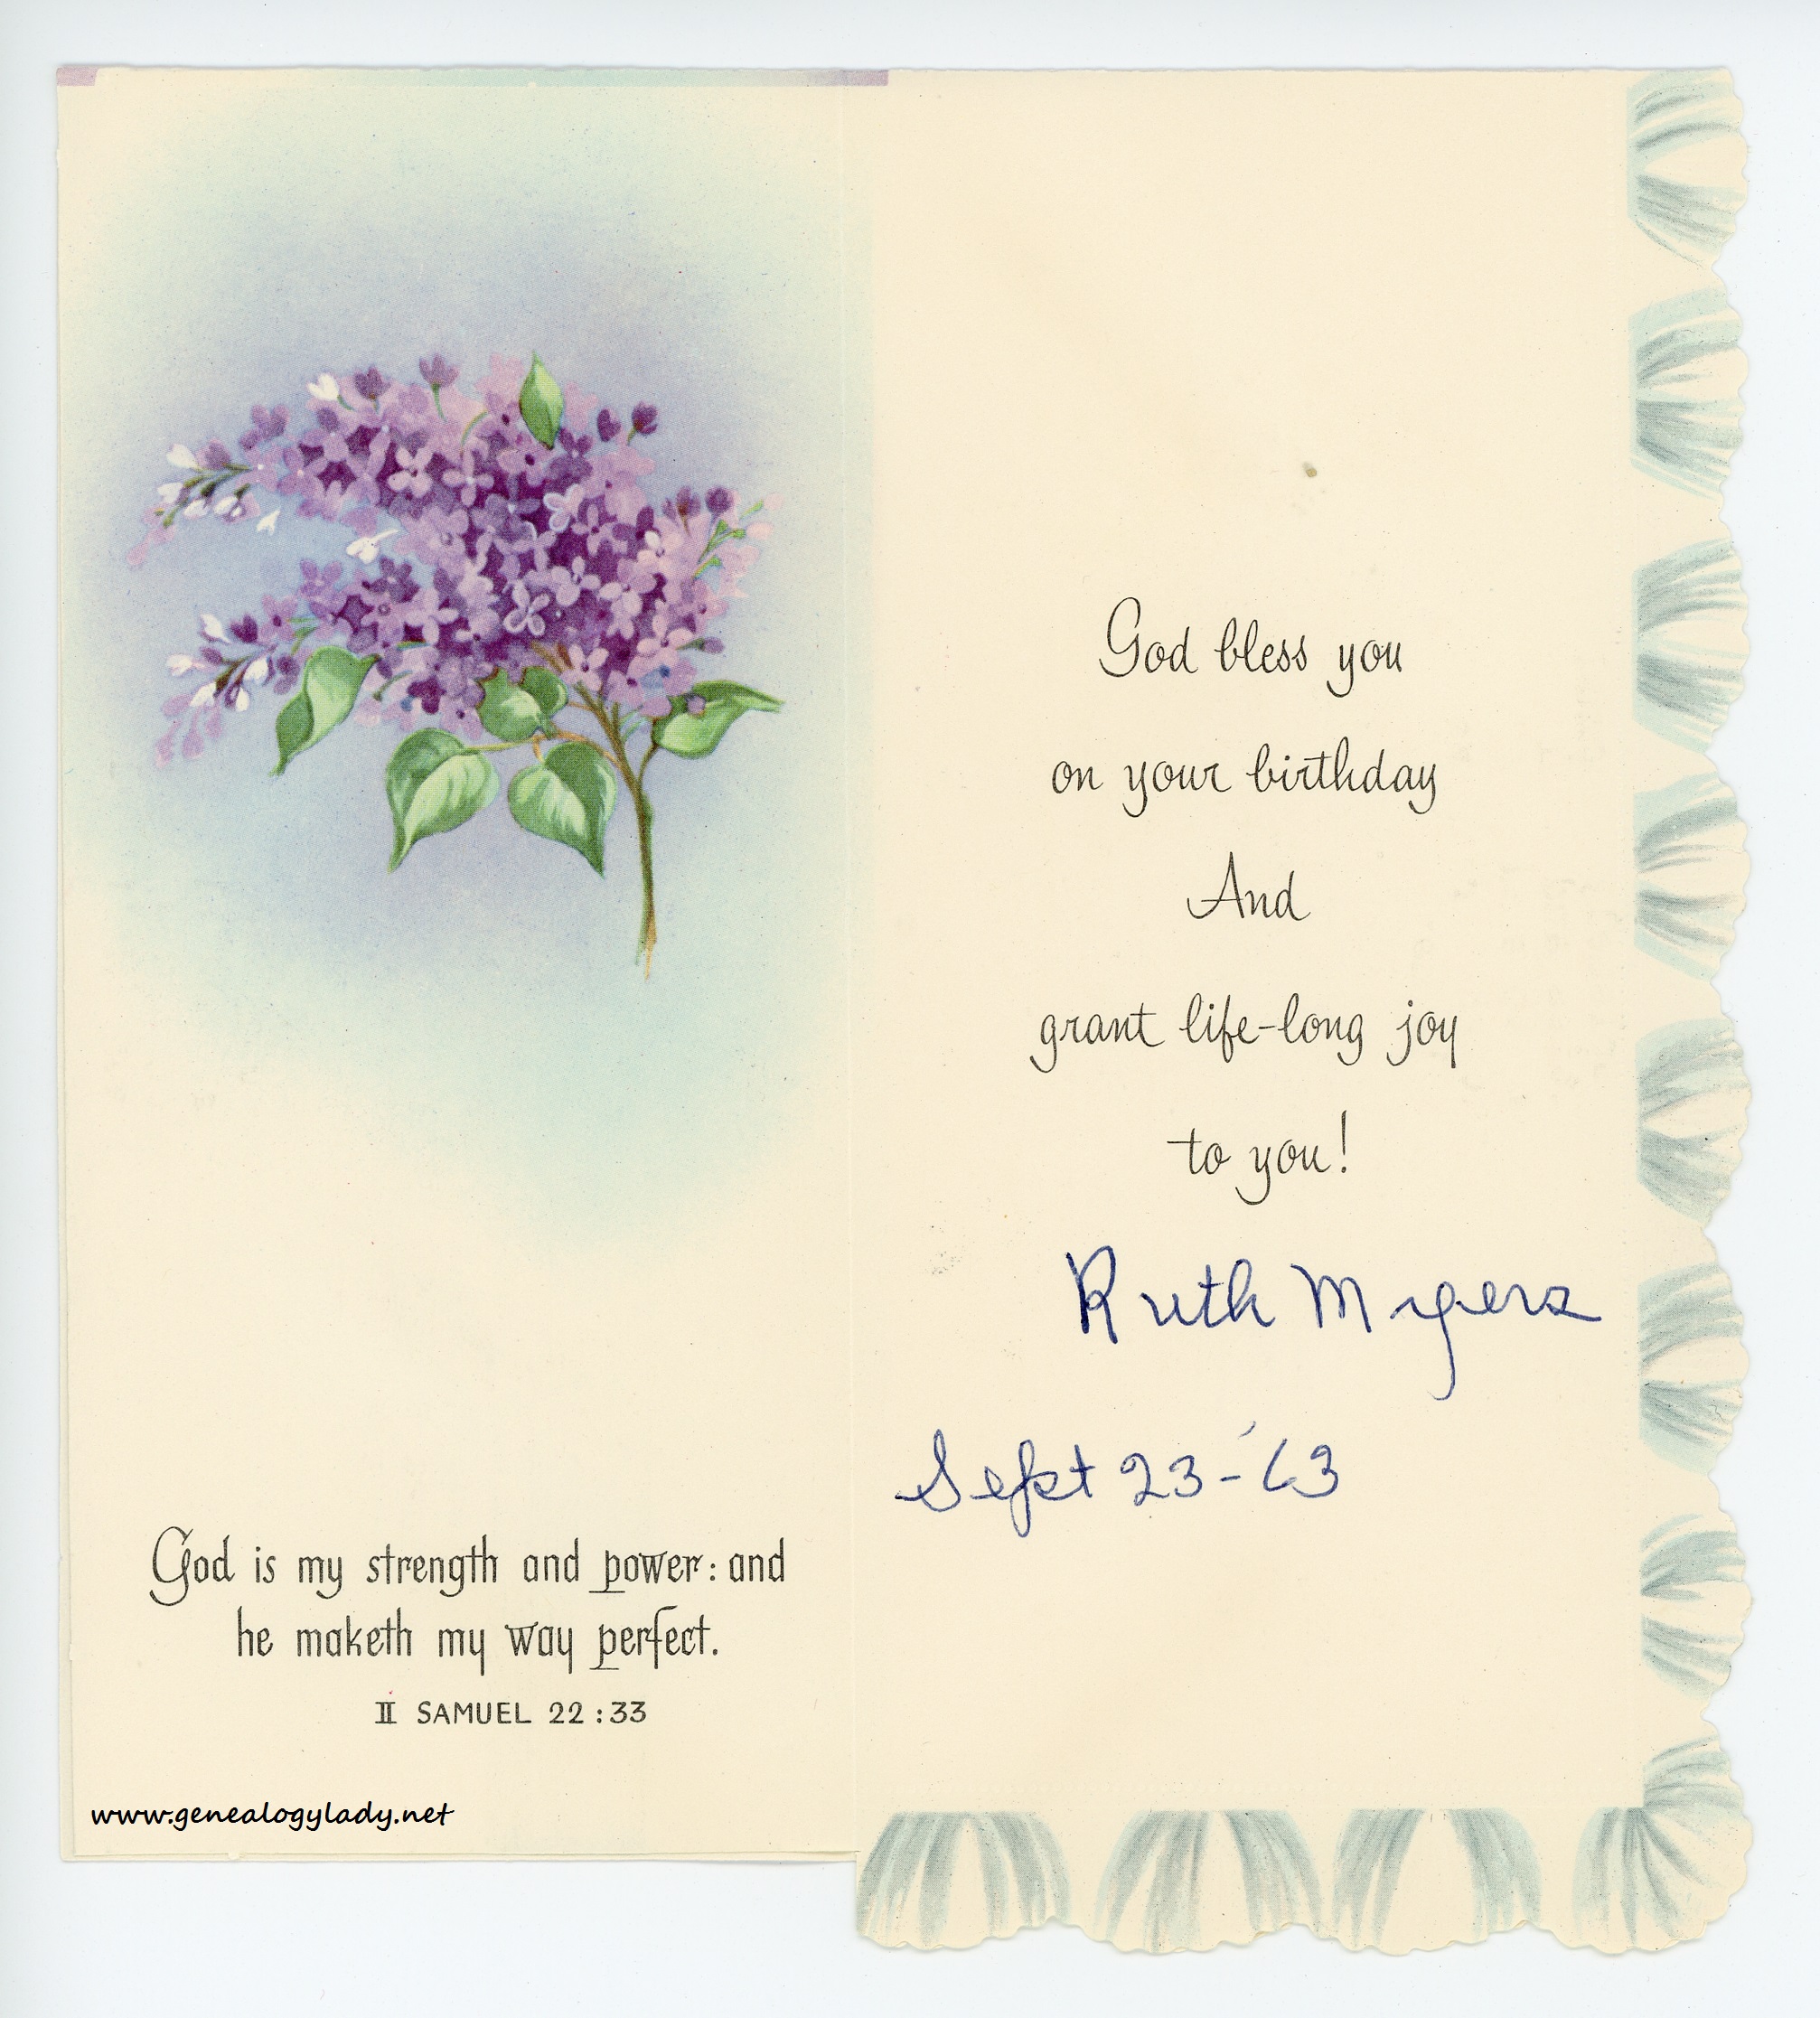 God is my strength and power: and
he maketh my way perfect.
II SAMUEL 22:33
www.genealogylady.net
God bless you
on your birthday
And
grant life-long joy
to you!
Ruth Myers
Sept 23-'63